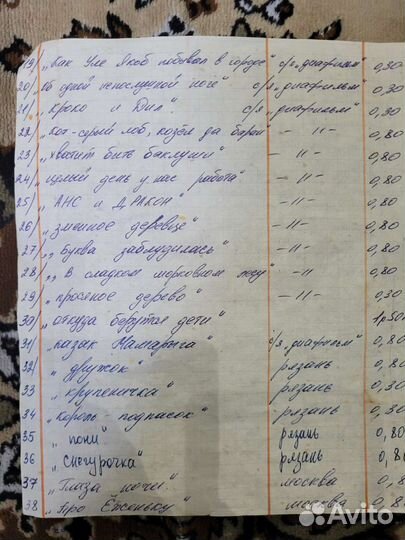 19/ „Как Уле Якоб побывал в городе“ с/я „диафильм“ 0,30
20/ „Об одной непослушной ноте“ с/я „диафильм“ 0,30
21/ „Кроко и Бил“. с/я „диафильм“ 0,30
22/ „Кот-серый лоб, козёл да баран“ —"— 0,80
23/ „хватит бить баклуши“ —"— 0,80
24/ „целый день у нас работа“ —"— 0,80
25/ „АНС и ДРАКОН“ —"— 0,80
26/ „зимнее деревце“ —"— 0,80
27/ „буква заблудилась“ —"— 0,80
28/ „В сладком морковном лесу“ —"— 0,80
29/ „просяное дерево“ —"— 0,30
30/ „откуда берутся дети“ 1р50
31/ „казак Мамарыга“ с/я „диафильм“ 0,8
32/ „дружок“ рязань. 0,8
33/ „крупеничка“ рязань 0,30
34 „король подпасок“ рязань 0,30
35 „пони“ рязань 0,80
36 „снегурочка“ рязань 0,80
37 „Глаза ночи“ москва 0,8
38 „Про Ёженьку“ москва 0,8
Avito